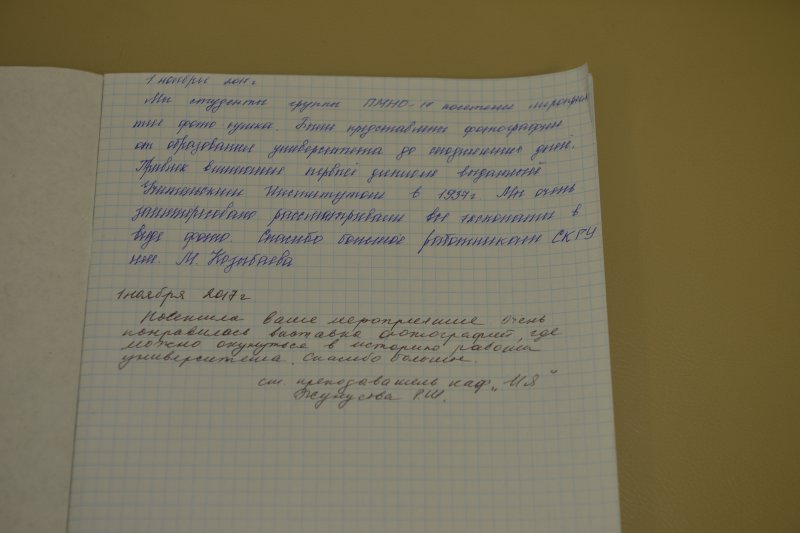 1 ноября 2017г.
Мы студенты группы ПМНО-17 посетили мероприя
тие фото музея. Были представлены фотографии
от образования университета до сегодняшних дней.
Привлек внимание первый диплом выданный
Учительским Институтом в 1937г. Мы очень
заинтересовано рассматривали все экспонаты в
виде фото. Спасибо большое работникам СКГУ
им. М. Козыбаева
1 ноября 2017г
Посетила ваше мероприятие очень
понравилась выставка фотографий, где
можно окунуться в историю работы
университета. Спасибо большое.
ст. преподаватель каф. "ИЯ"
Р.Ш.